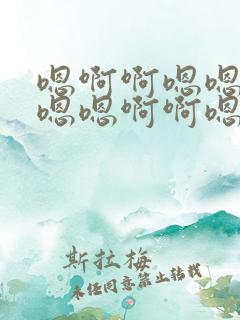 嗯啊啊嗯嗯
嗯嗯啊啊嗯
斯拉梅
未经同意禁止转载